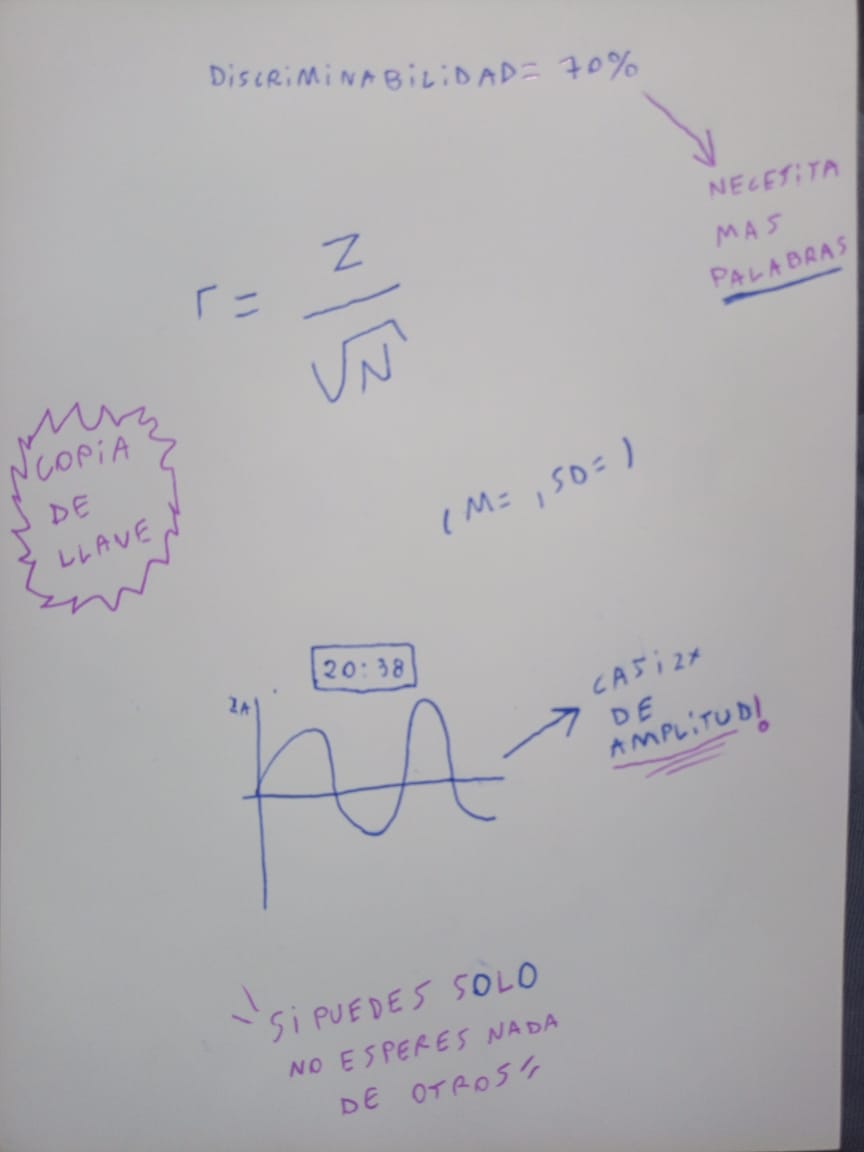 DISCRIMINABILIDAD= 70%
NECESITA
MAS
PALABRAS
r = Z / √N
COPIA
DE
LLAVE
(M= , SD= )
20:38
2A
CASI 2x
DE
AMPLITUD!
"SI PUEDES SOLO
NO ESPERES NADA
DE OTROS"